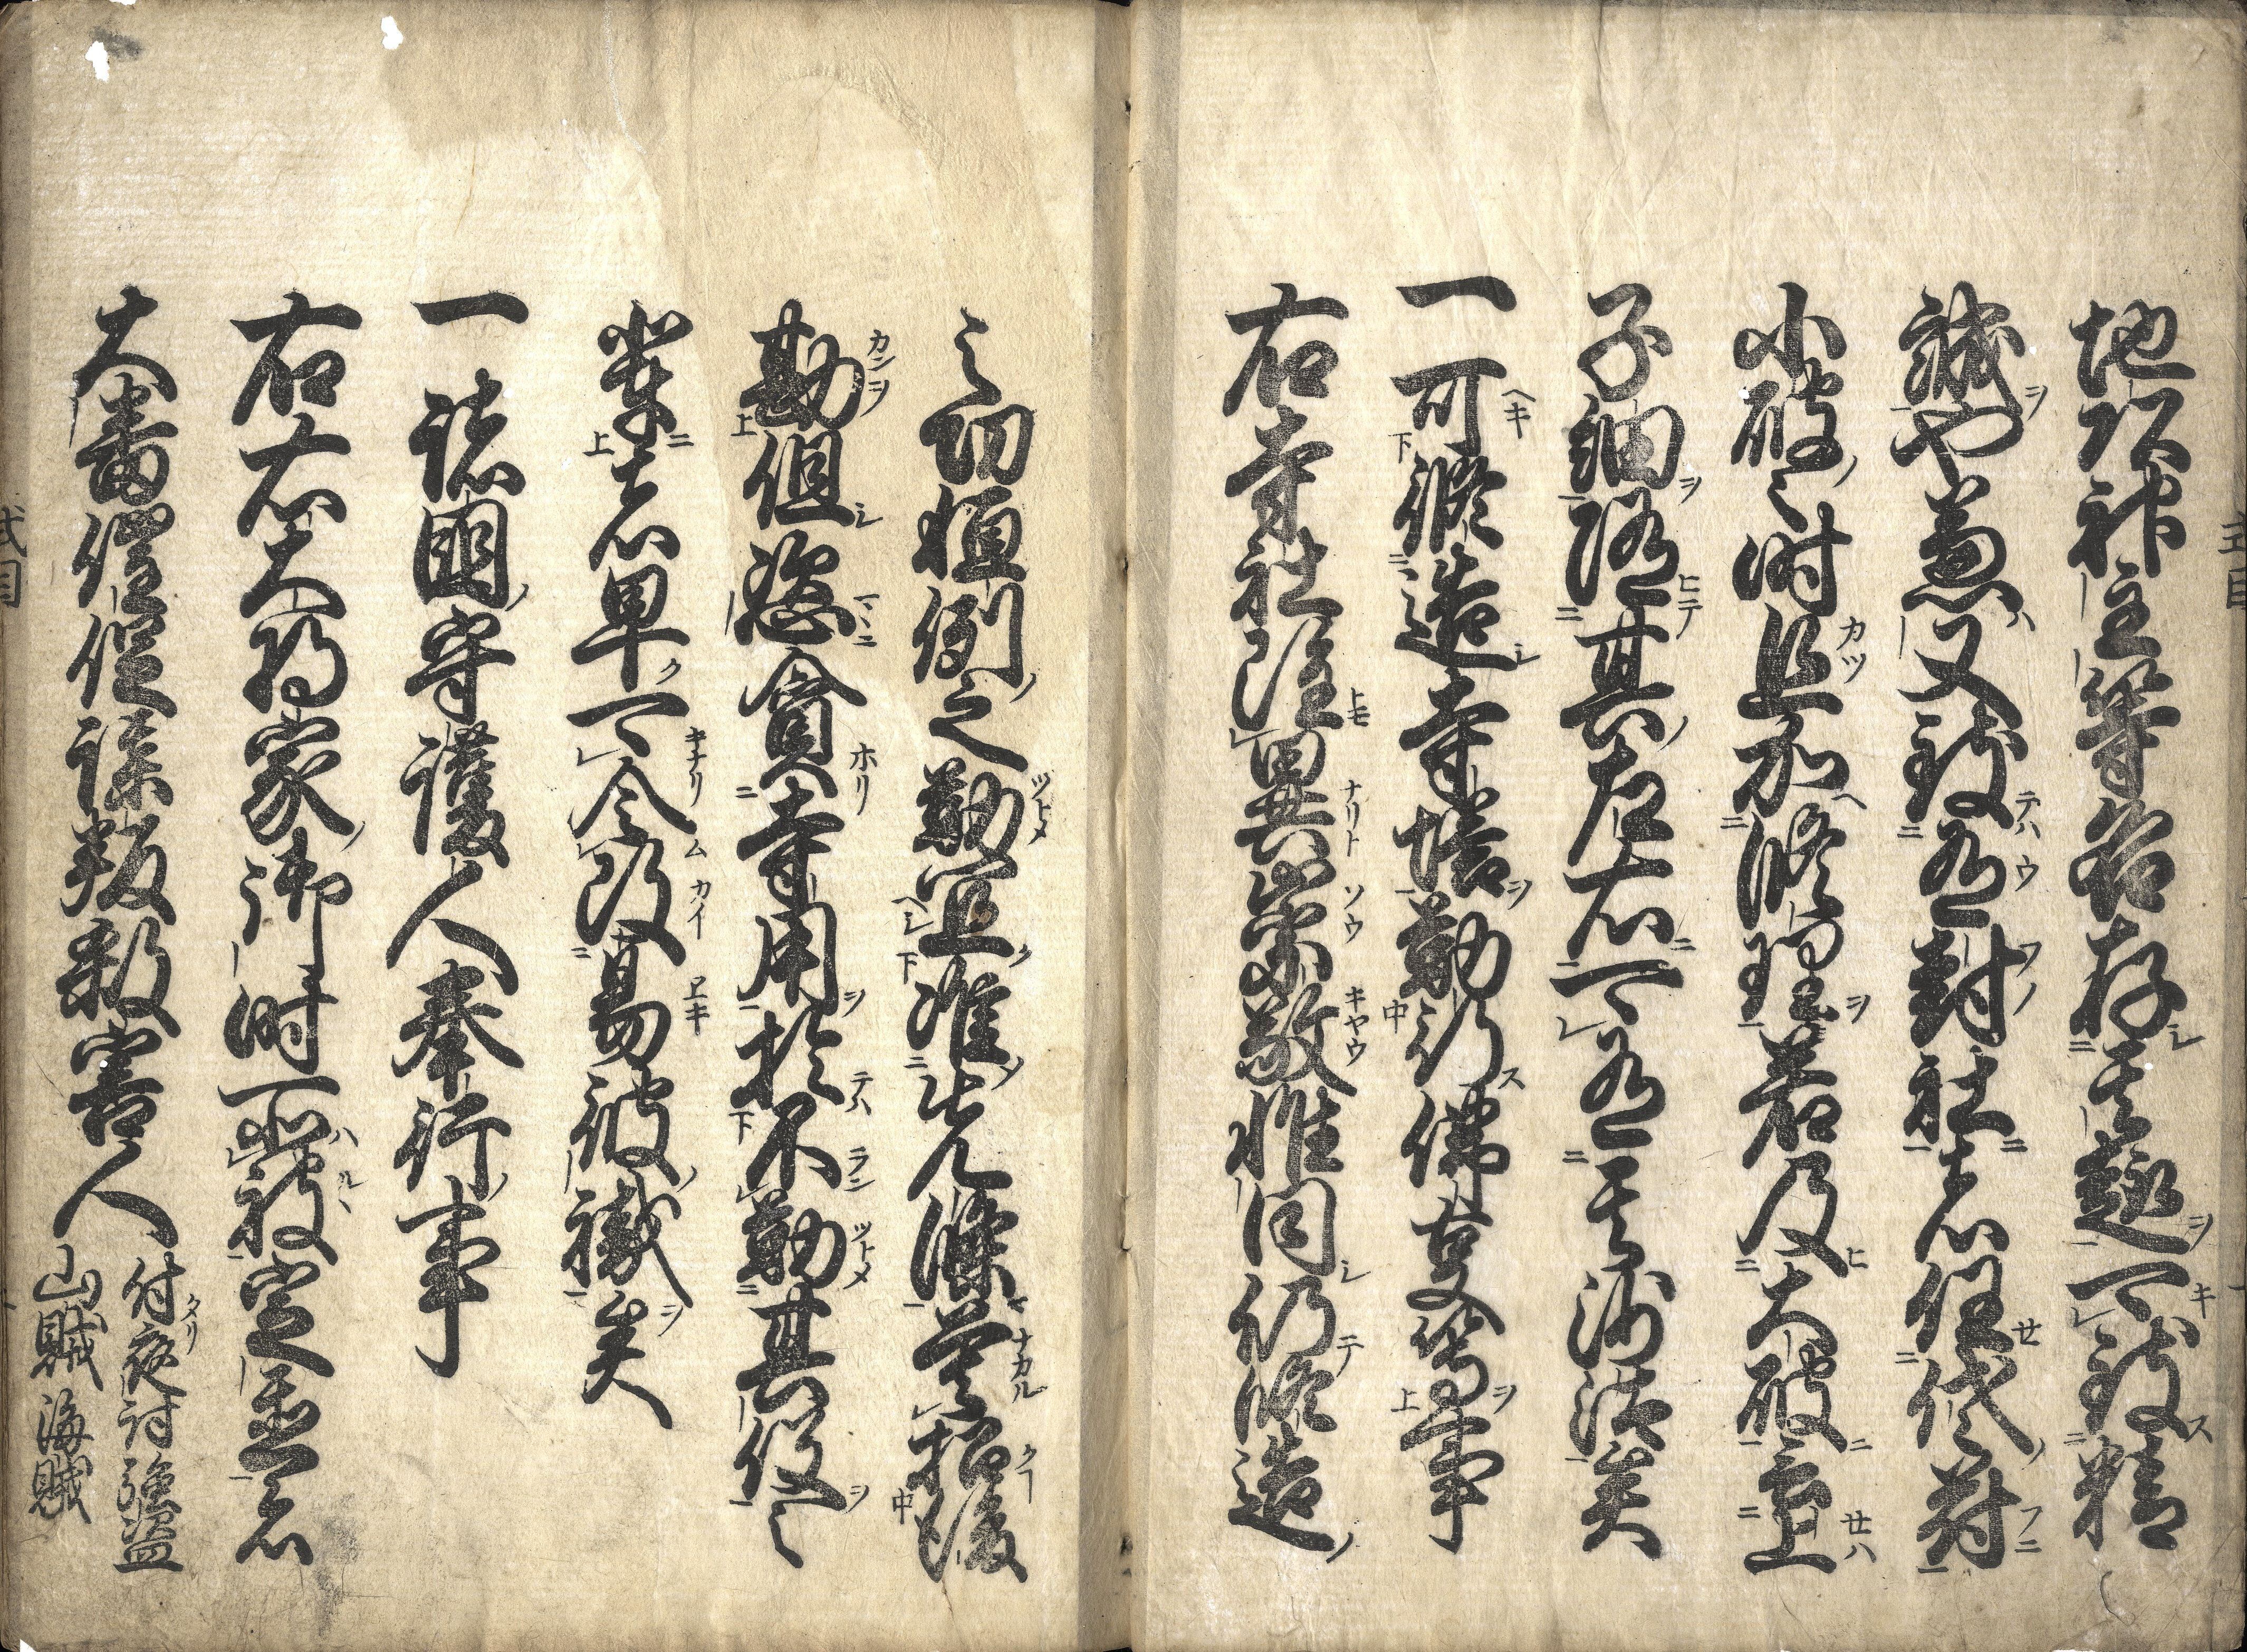 地頭神主等各存其趣可致精
誠也兼又致有封社者任代符
小破之時且加修理若及大破言上
子細随其左右可有其沙汰矣
一可修造寺塔勤行佛事等事
右寺社雖異崇敬惟同仍修造
之功恒例之勤宜准先條莫招後
勘但恣貪寺用於不勤其役之
輩者早可令改易彼職矣
一諸國守護人奉行事
右右大将家御時所被定置者
大番催促謀叛殺害人
付夜討強盗
山賊海賊
式目